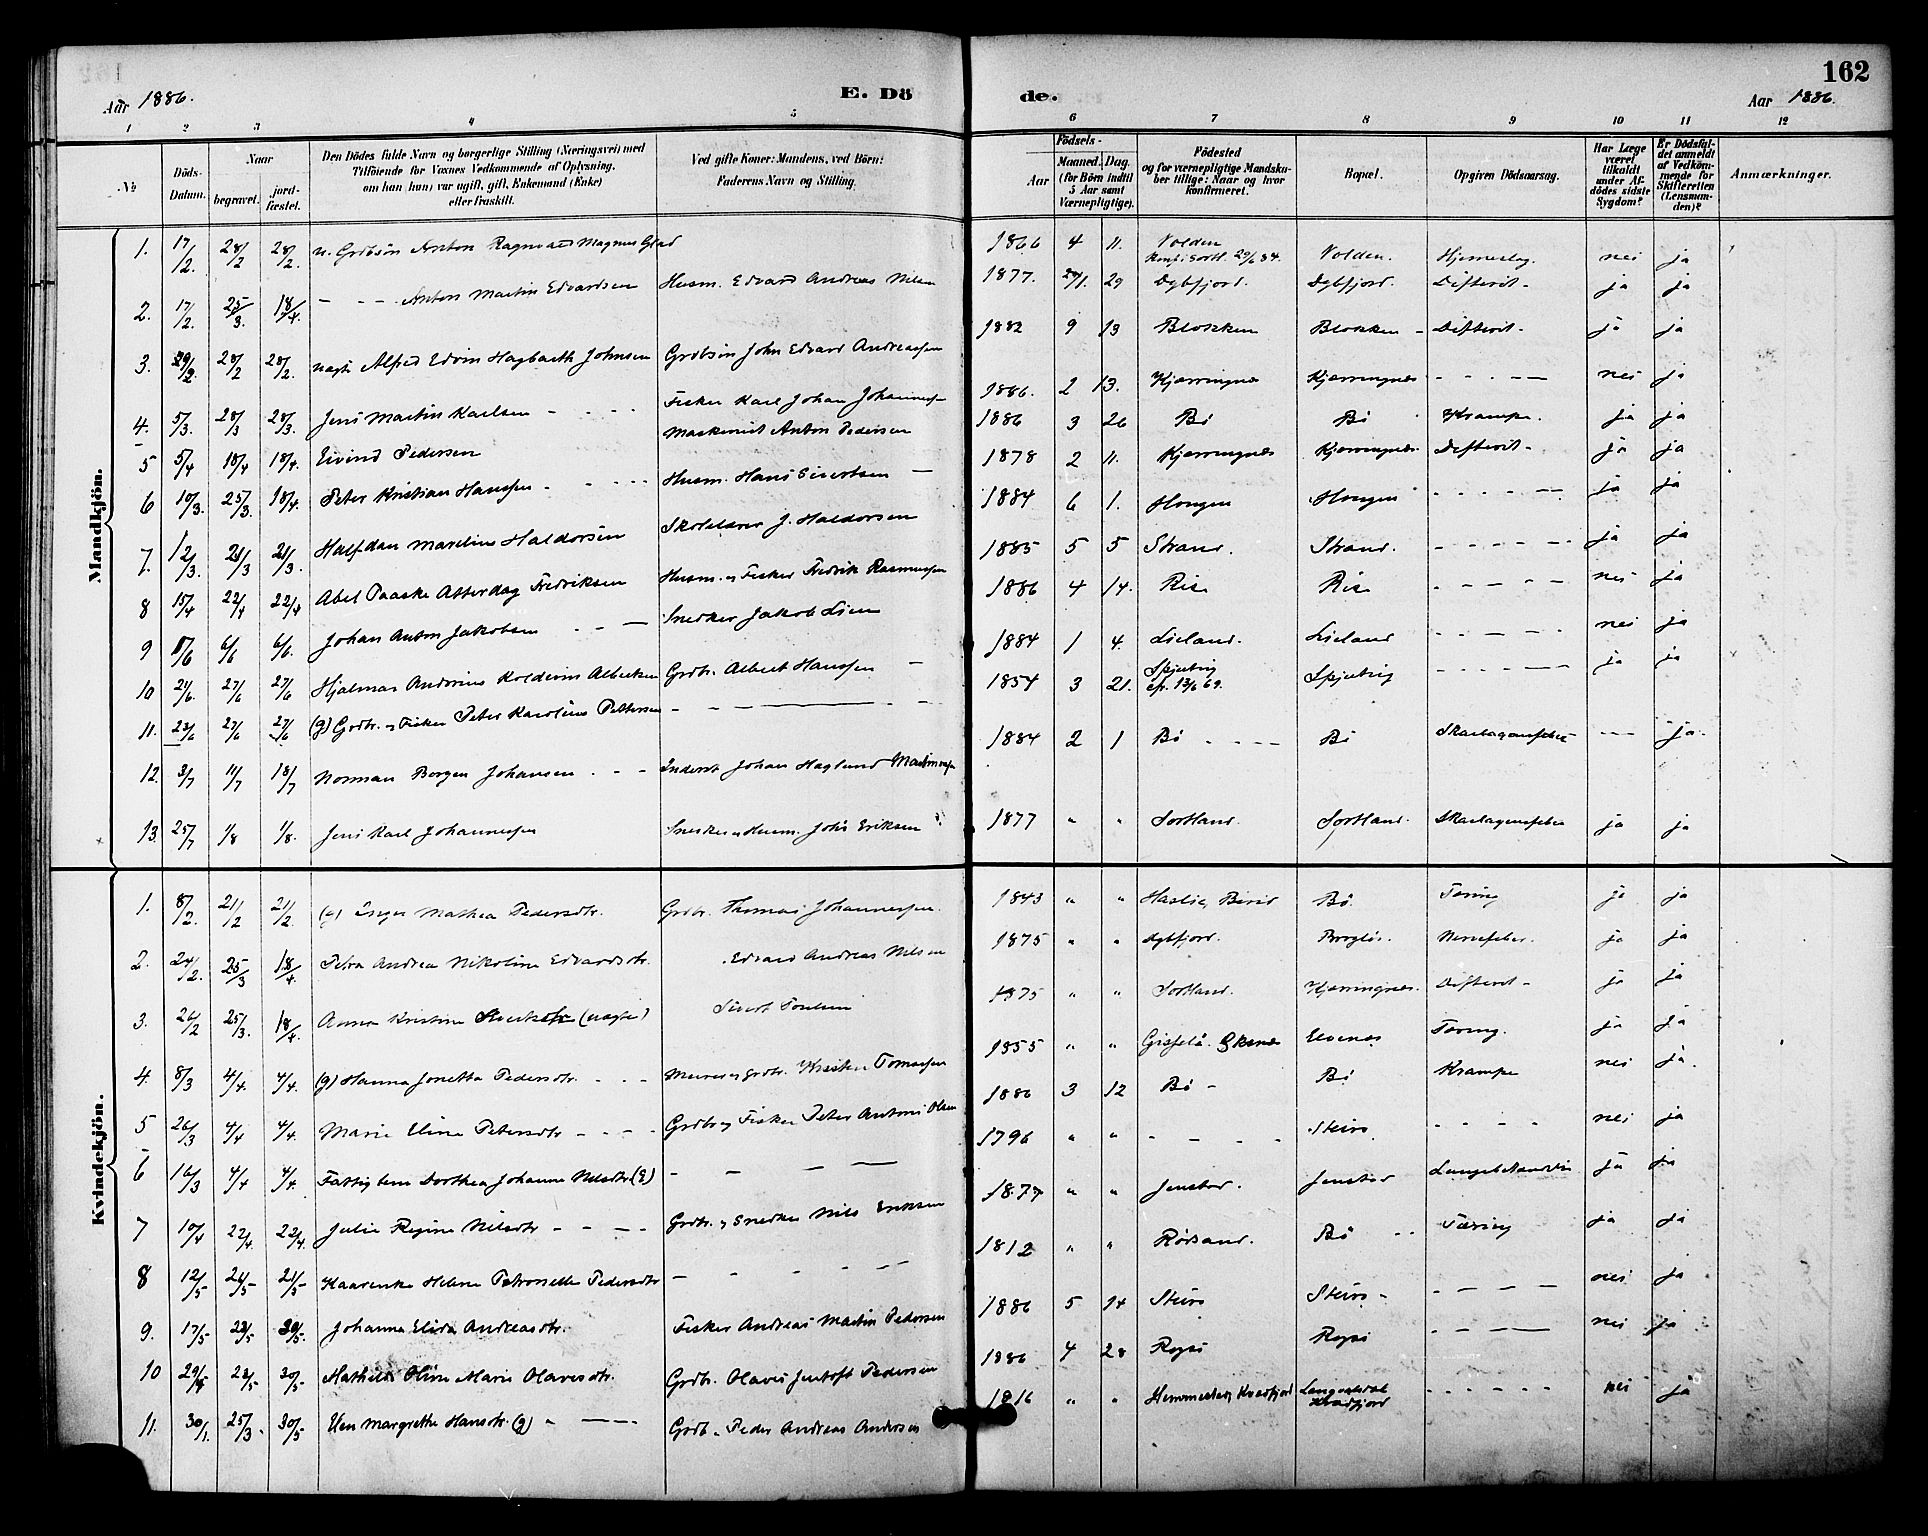 162
Aar 1886.
E. Dö
de.
Aar 1886.
1 2 3 4 5 6 7 8 9 10 11 12
№
Döds-Datum.
Naar begravet. jord-fæstet.
Den Dödes fulde Navn og borgerlige Stilling (Næringsvei) med
Tilföiende for Voxnes Vedkommende af Oplysning,
om han (hun) var ugift, gift, Enkemand (Enke)
eller fraskilt.
Ved gifte Koner: Mandens, ved Börn:
Faderens Navn og Stilling.
Födsels-
Aar Maaned. Dag.
(for Börn indtil
5 Aar samt
Værnepligtige).
Födested
og for værnepligtige Mandska-
ber tillige: Naar og hvor
konfirmeret.
Bopæl.
Opgiven Dödsaarsag.
Har Læge
været
tilkaldt
under Af-
dödes sidste
Sygdom?
Er Dödsfal-
det anmeldt
af Vedkom-
mende for
Skifteretten
(Lensman-
den)?
Anmærkninger.
Mandkjön.
1. 17/2. 28/2 28/2. u. Grdbsön Anton Ragnvald Magnus Glad 1866 4 11. Volden Konf. i Sortl. 29/6 84. Volden. nei ja
2. 17/2. 25/3. 18/4. – – – Anton Martin Edvardsen Husm. Edvard Andreas Nilsen 1877. 29 Dybfjord. Dybfjord. Difterit – ja ja
3. 28/2 28/2. Alfred Edvin Hagbarth Johnsen Grdbsön John Edvard Andreassen 1882 9 13 Blokken Blokken – Difterit – ja ja
4. 5/3. 28/3 28/3. Jens Martin Karlsen – – – – Fisker Karl Johan Johannessen 1886. 2 13. Kjerringnes Kjerringnes – – – – nei ja
5 5/4 18/4 18/4. Eivind Pedersen Maskinist Anton Pedersen 1886 3 26 Bö Bö Krampe. ja ja
6 10/3. 25/3. 18/4. Peter Kristian Hanssen – – – Husm. Hans Sivertsen – 1878 2 11. Kjerringnes Kjerringnes Difterit – ja ja
7. 12/3. 21/3 21/3. Halfdan Marelius Haldorsen Skolelærer J. Haldorsen 1884 6 1. Hougen Hougen – – – – – ja ja
8 15/4 22/4 22/4 Abel Paaske Atterdag Fredriksen Husm. og Fisker Fredrik Rasmussen 1885 5 5 Strand. Strand. – – – – – ja ja
9 6/6 6/6. Johan Anton Jakobsen – – – Snedker Jakob Lien 1886 4 14. Ris Ris – – – – – nei ja
10 21/6. 27/6 27/6 Hjalmar Andreas Albertsen Grdbr. Albert Hanssen – 1884 1 4. Lieland. Lieland – – – – nei ja
11. 23/6 27/6 27/6 (g) Grdbr. og Fisker Peter Karolius Pettersen – – – – – 1854 3 21. 13/6 69. – – – – – ja ja
12. 3/7 11/7 18/7 Norman Borgen Johansen . – – Inderst Johan Haglund 1884 2 1 Bö – – – – Bö Skarlagensfeber – – – ja.
13. 25/7 1/8 1/8. Jens Karl Johannessen Snedker og Husm. Johs Eriksen 1877 " " Sortland. Sortland. Skarlagensfeber ja ja
Kvindekjön.
1. 8/2. 21/2 21/2. (g) Inger Mathea Pedersdtr. Grdbr. Thomas Johannessen. 1843 " " Bö. Tæring ja ja
2. 24/2. 25/3 18/4 Petra Andrea Nikoline Edvardsdtr. Edvard Andreas Nilsen 1875 " " Dybfjord. Nervefeber. ja ja
3. 26/2 25/3. 18/4. Anna Kristine Sivertsdtr Sivert 1875 " " Sortland. Kjerringnes. Difterit – ja ja
4. 8/3 4/4 4/4. (g) Hanna Jonetta Pedersdtr. – – – Murer og Grdbr. 1855 " " Elvenes Tæring. ja ja
5 26/3 4/4 4/4. Marie Eline Petersdtr – – – – Grdbr og Fisker Peter Antoni Olsen 1886 3 12 Bö – Bö Krampe nei ja.
6 16/3 4/4 4/4. Fattiglem Dorthea Johanna Nilsdtr (E) – – – – 1796 " " – – – – Steiro – – – – nei ja
7 10/4 22/4. 22/4. Julie Regine Nilsdtr – – – – Grdbr. og Snedker Nils Eriksen 1877 " " Jenstad. Jenstad Lungebetændelse ja ja
8 12/5 21/5 21/5 Karenke Helene Petronelle Pedersdtr – – – – – 1812 " " Rödsand. Bö – – Tæring ja ja
9. 17/5 30/5. Johanna Elida Andreasdtr. Fisker Andreas Martin Pedersen 1886 5 14 Steiro Steiro – – – – nei ja
10 30/5 Mathilde Oline Marie Olavesdtr. Grdbr. Olaves Jentoft Pedersen 1886 4 28 – – – – nei ja
11. 30/1. 25/3. 30/5 Elen Margrethe Hansdtr. (g) – – – – Grdb. Peder Andreas Andersen 1816 " " Hemmestad, Kvædfjord Kvædfjord – – – – – – nei ja